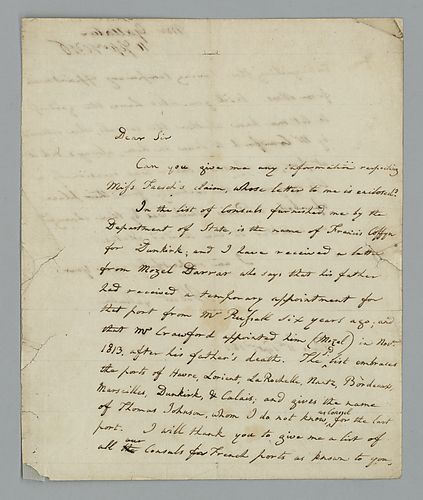 Dear Sir
Can you give me any information respecting
Miss Fesch's claim, whose letter to me is enclosed?
In the list of Consuls furnished me by the
Department of State, is the name of Francis Coffyn
for Dunkirk; and I have received a letter
from Mozel Darrar who says that his father
had received a temporary appointment for
that port from Mr Russell six years ago; and
that Mr Crawford appointed him (Mozel) in Novr.
1813, after his father's death. The sd. list embraces
the ports of Havre, Lorient, La Rochelle, Nantz, Bordeaux,
Marseilles, Dunkirk, & Calais; and gives the name
of Thomas Johnson, whom I do not know, as Consul for the last
port. I will thank you to give me a list of
all our Consuls for French ports as known to you,